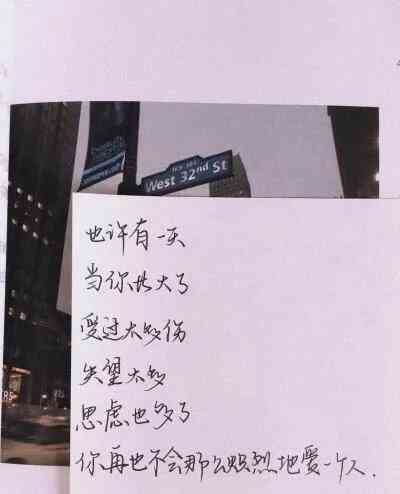 West 32nd St
也许有一天
当你长大了
受过太多伤
失望太多
思虑也多了
你再也不会那么炽烈地爱一个人.